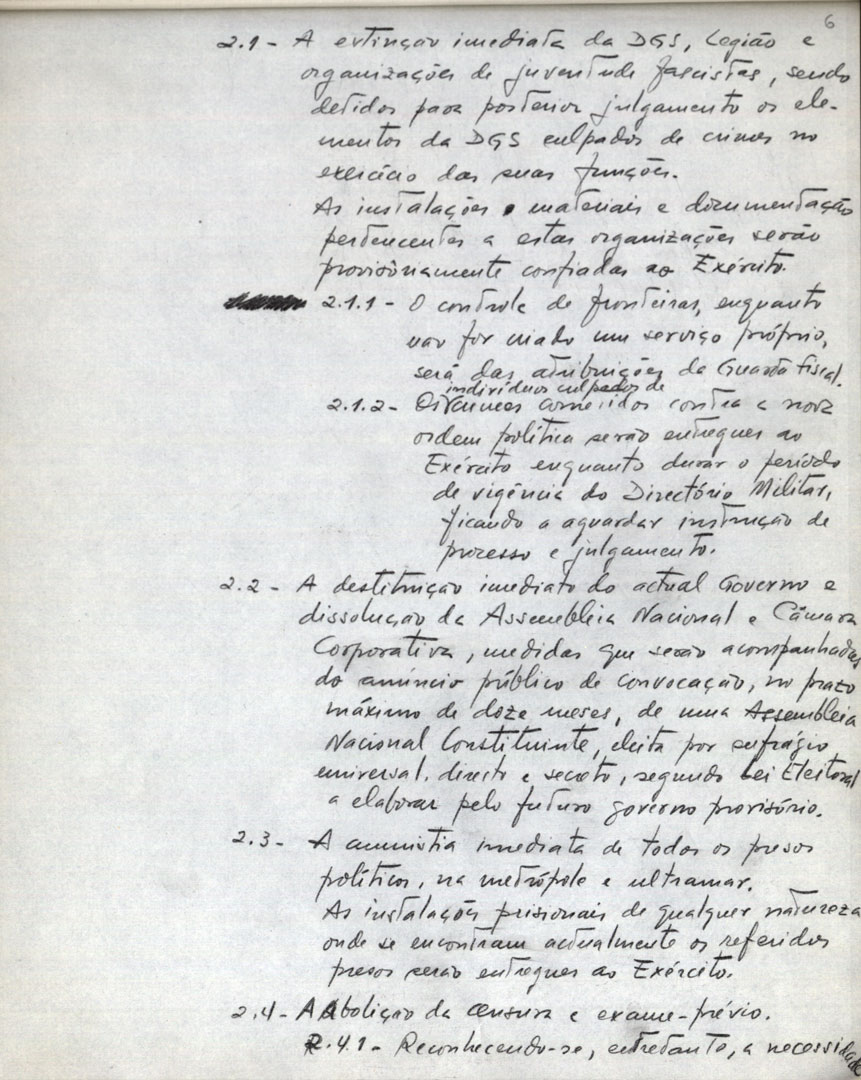 6
2.1 - A extinção imediata da DGS, Legião e
organizações de juventude fascistas, sendo
detidos para posterior julgamento os ele-
mentos da DGS culpados de crimes no
exercício das suas funções.
As instalações, materiais e documentação
pertencentes a estas organizações serão
provisòriamente confiadas ao Exército.
2.1.1 - O controle de fronteiras, enquanto
não for criado um serviço próprio,
será das atribuições da Guarda Fiscal.
indivíduos culpados de
2.1.2 - Os crimes cometidos contra a nova
ordem política serão entregues ao
Exército enquanto durar o período
de vigência do Directório Militar,
ficando a aguardar instrução de
processo e julgamento.
2.2 - A destituição imediata do actual Governo e
dissolução da Assembleia Nacional e Câmara
Corporativa, medidas que serão acompanhadas
do anúncio público de convocação, no prazo
máximo de doze meses, de uma Assembleia
Nacional Constituinte, eleita por sufrágio
universal, directo e secreto, segundo Lei Eleitoral
a elaborar pelo futuro governo provisório.
2.3 - A amnistia imediata de todos os presos
políticos, na metrópole e ultramar.
As instalações prisionais de qualquer natureza
onde se encontram actualmente os referidos
presos serão entregues ao Exército.
2.4 - A Abolição da censura e exame-prévio.
2.4.1 - Reconhecendo-se, entretanto, a necessidade